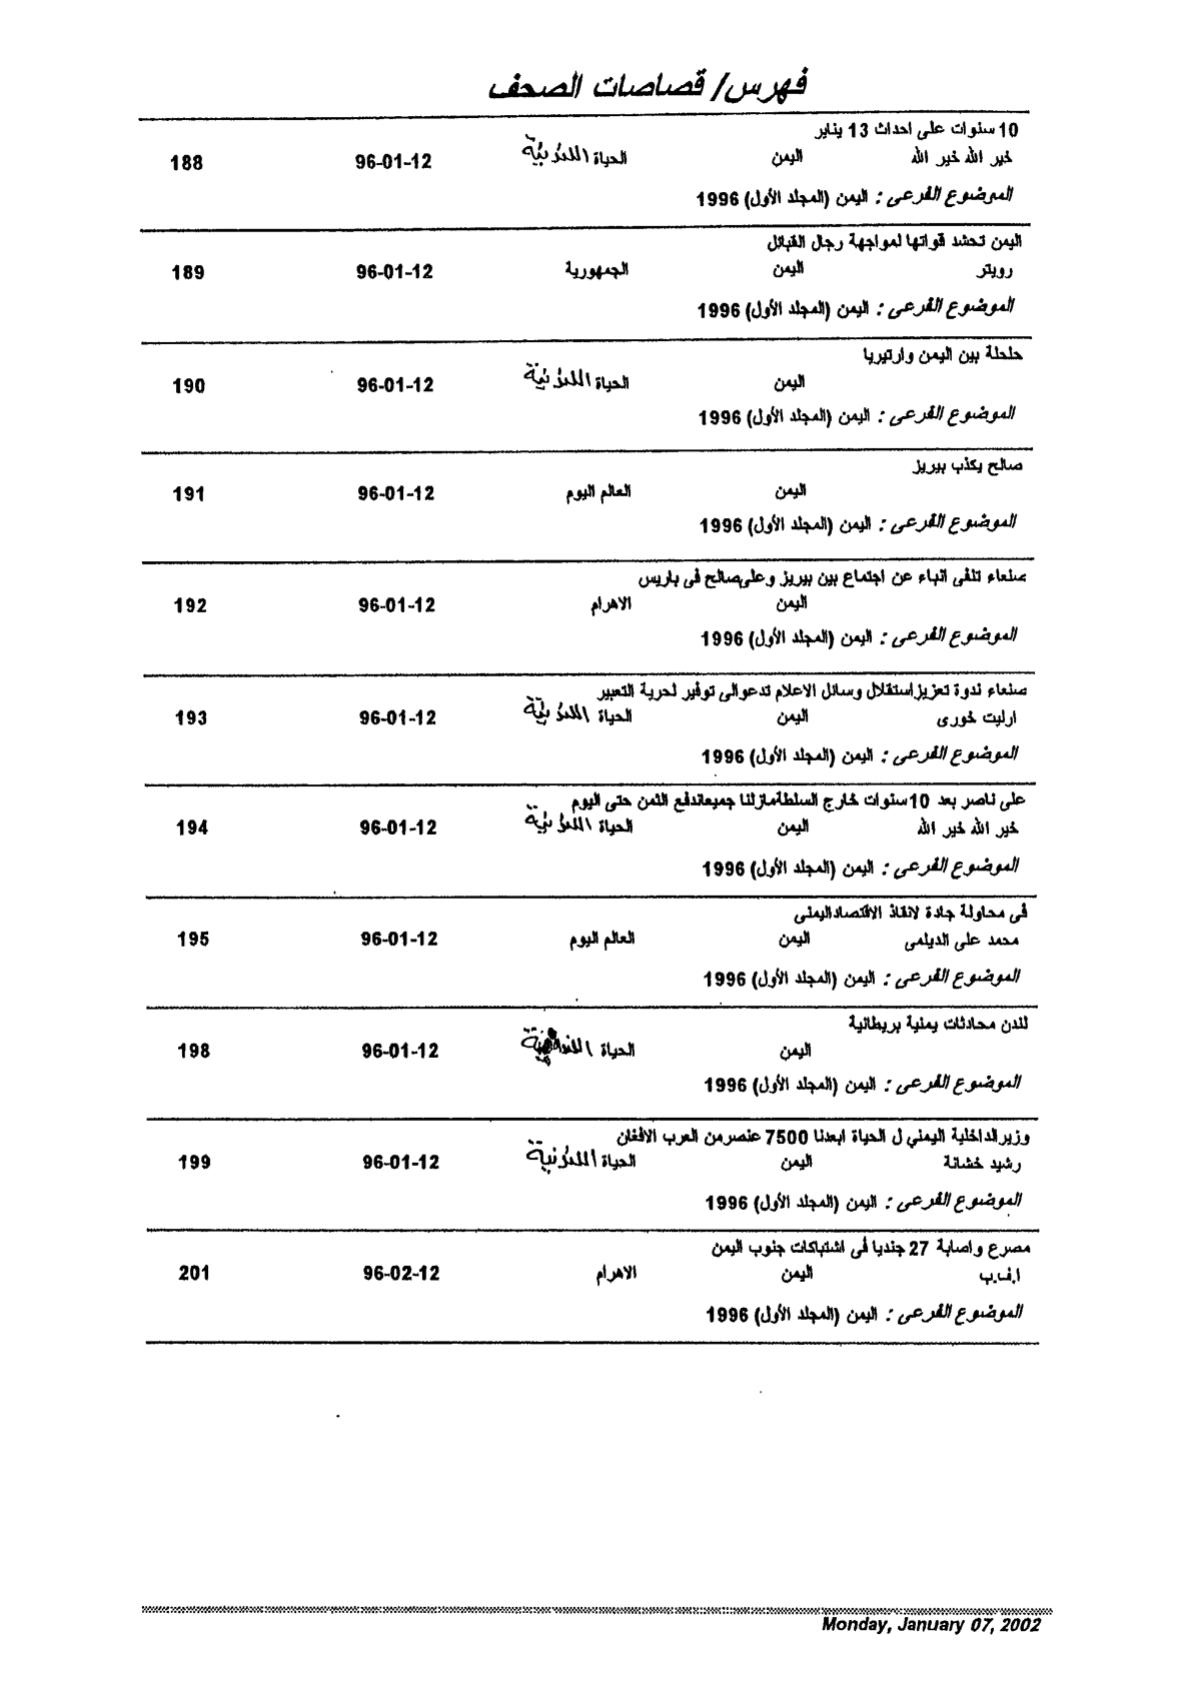 فهرس/ قصاصات الصحف
10 سنوات على احداث 13 يناير
خير الله خير الله اليمن الحياة اللندنية 96-01-12 188
الموضوع الفرعى : اليمن (المجلد الأول) 1996
اليمن تحشد قواتها لمواجهة رجال القبائل
رويتر اليمن الجمهورية 96-01-12 189
الموضوع الفرعى : اليمن (المجلد الأول) 1996
حلحلة بين اليمن وارتيريا
اليمن الحياة اللندنية 96-01-12 190
الموضوع الفرعى : اليمن (المجلد الأول) 1996
صالح يكذب بيريز
اليمن العالم اليوم 96-01-12 191
الموضوع الفرعى : اليمن (المجلد الأول) 1996
صنعاء تنفى انباء عن اجتماع بين بيريز وعلىصالح فى باريس
اليمن الاهرام 96-01-12 192
الموضوع الفرعى : اليمن (المجلد الأول) 1996
صنعاء ندوة تعزيزاستقلال وسائل الاعلام تدعوالى توفير لحرية التعبير
ارليت خورى اليمن الحياة اللندنية 96-01-12 193
الموضوع الفرعى : اليمن (المجلد الأول) 1996
على ناصر بعد 10سنوات خارج السلطةمازلنا جميعاندفع الثمن حتى اليوم
خير الله خير الله اليمن الحياة اللندنية 96-01-12 194
الموضوع الفرعى : اليمن (المجلد الأول) 1996
فى محاولة جادة لانقاذ الاقتصاداليمنى
محمد على الديلمى اليمن العالم اليوم 96-01-12 195
الموضوع الفرعى : اليمن (المجلد الأول) 1996
لندن محادثات يمنية بريطانية
اليمن الحياة اللندنية 96-01-12 198
الموضوع الفرعى : اليمن (المجلد الأول) 1996
وزيرالداخلية اليمني ل الحياة ابعدنا 7500 عنصرمن العرب الافغان
رشيد خشانة اليمن الحياة اللندنية 96-01-12 199
الموضوع الفرعى : اليمن (المجلد الأول) 1996
مصرع واصابة 27 جنديا فى اشتباكات جنوب اليمن
ا.ف.ب اليمن الاهرام 96-02-12 201
الموضوع الفرعى : اليمن (المجلد الأول) 1996
Monday, January 07, 2002